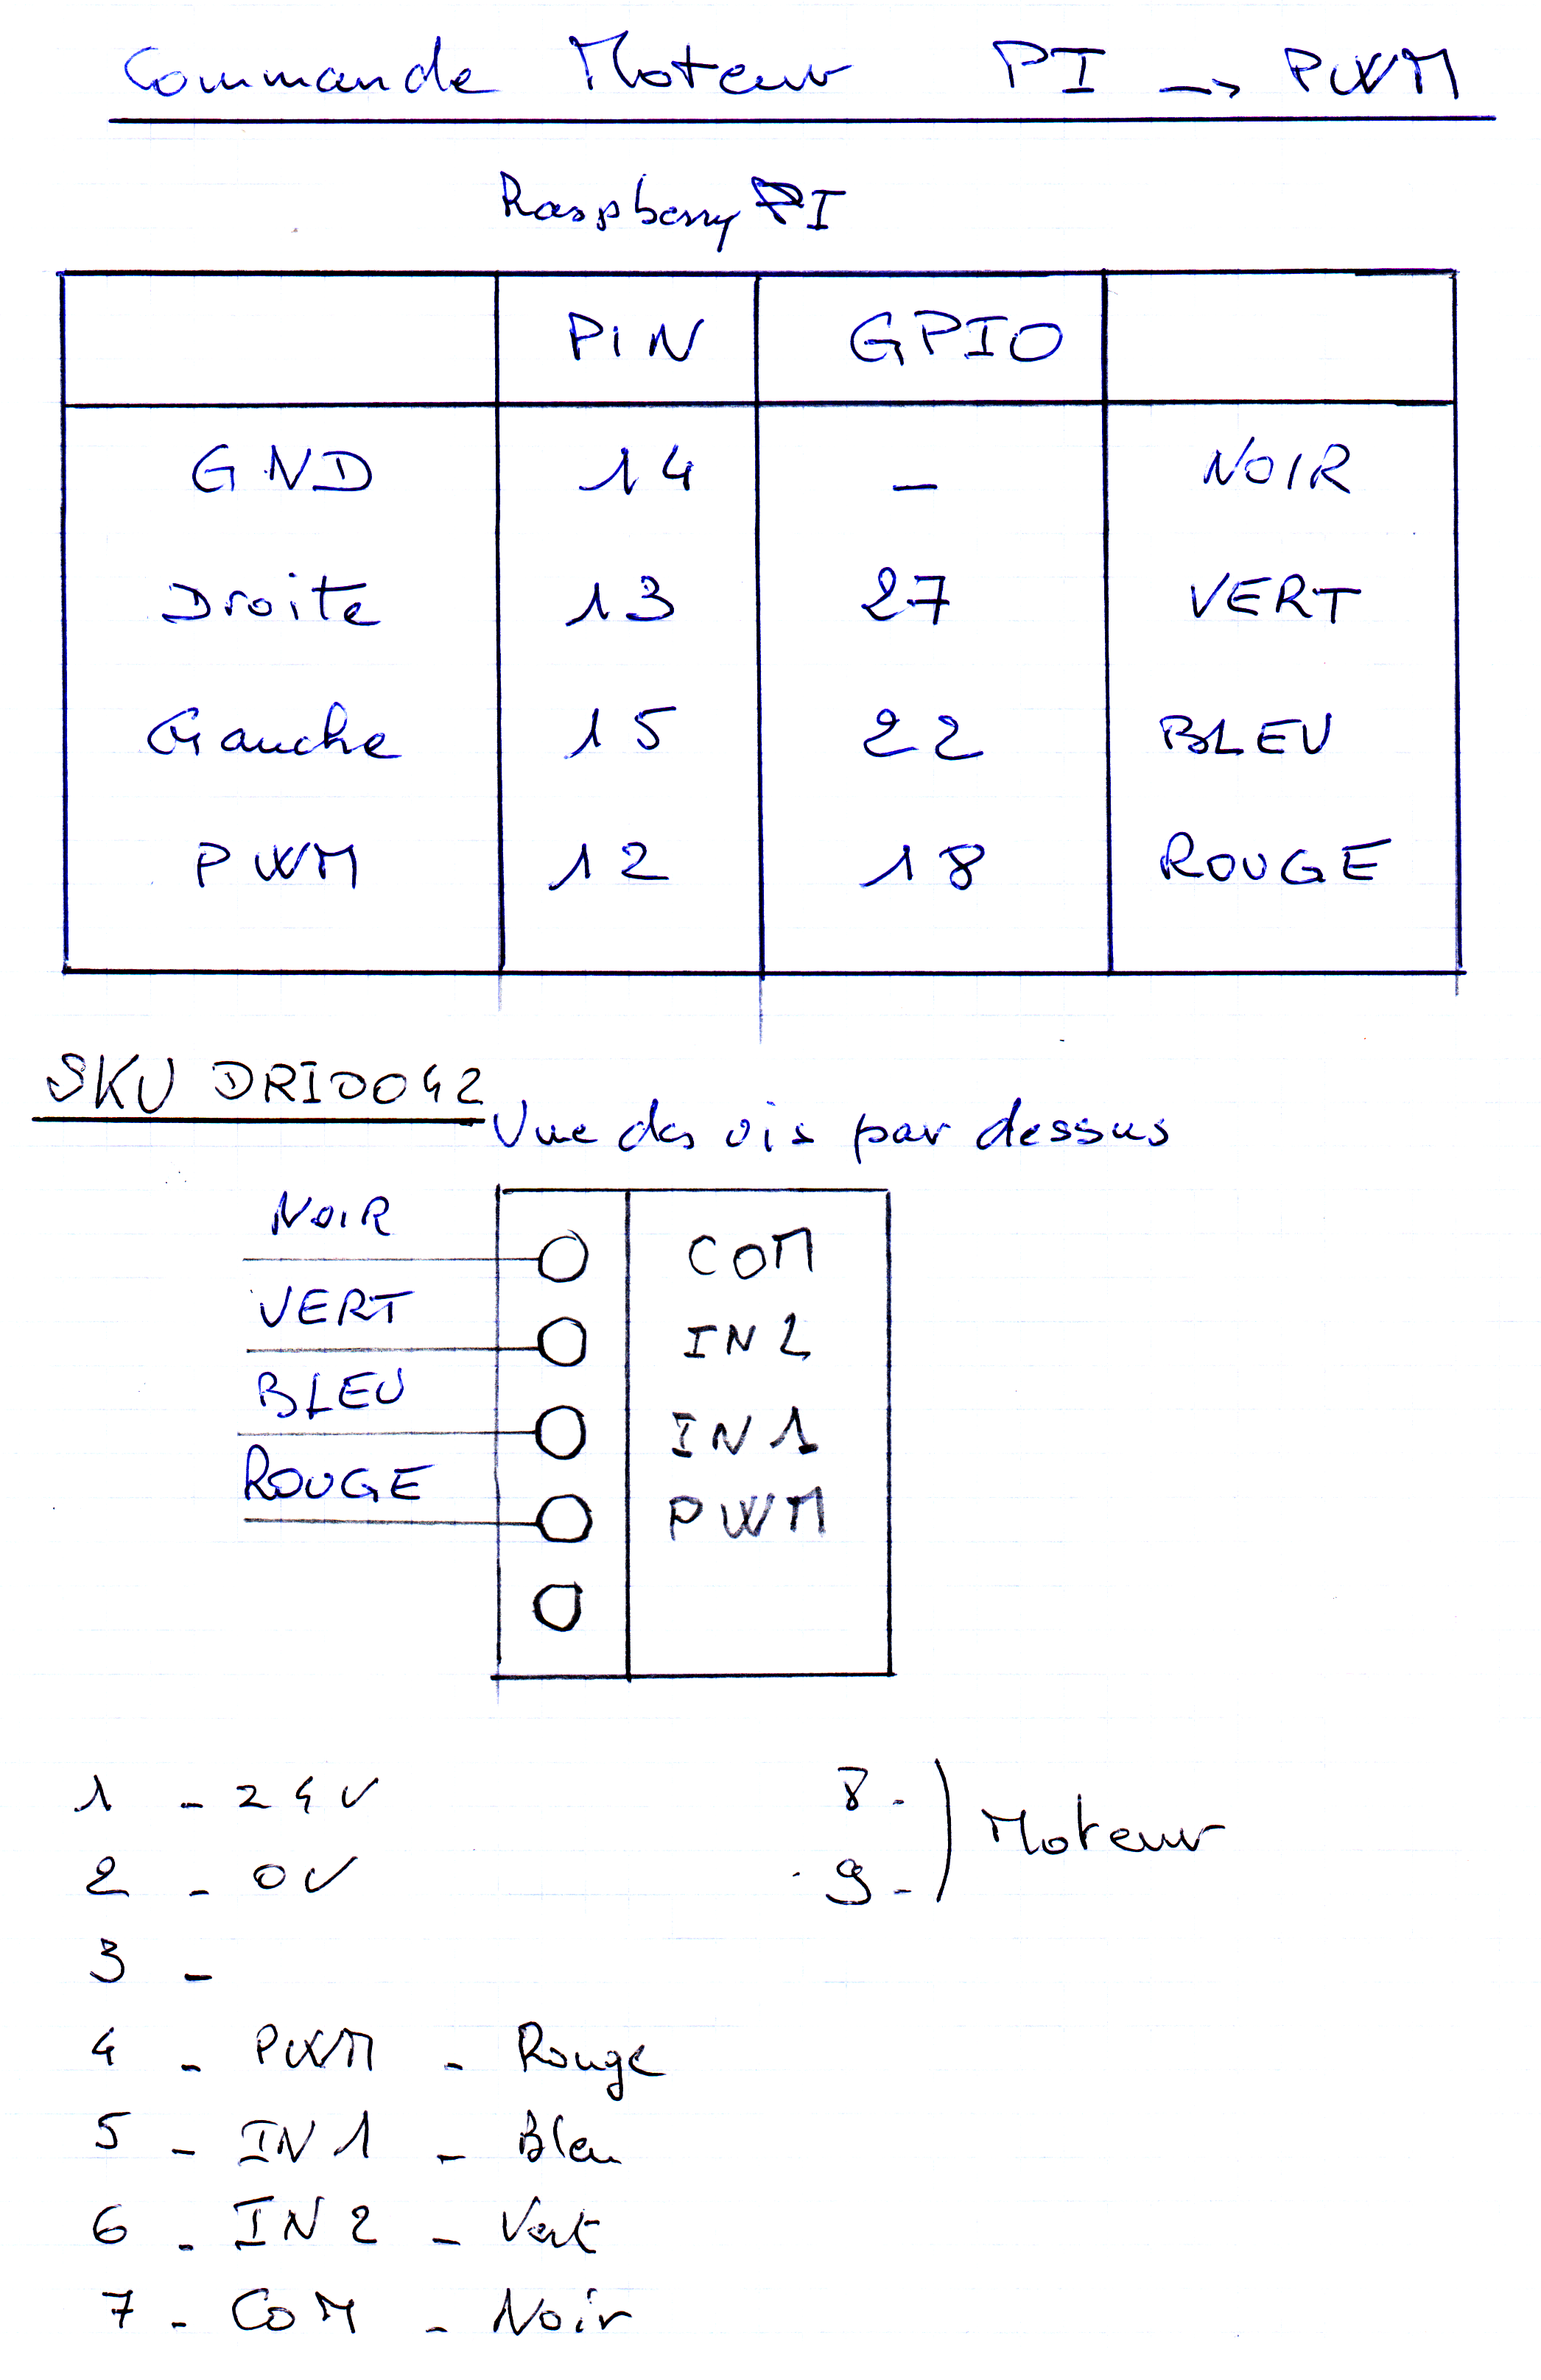 Commande Moteur PI → PWM
Raspberry PI
PIN GPIO
GND 14 - NOIR
Droite 13 27 VERT
Gauche 15 22 BLEU
PWM 12 18 ROUGE
SKU DRI0042
Vue des vis par dessus
NOIR COM
VERT IN2
BLEU IN1
ROUGE PWM
1 - 24V
2 - 0V
3 -
4 - PWM - Rouge
5 - IN1 - Bleu
6 - IN2 - Vert
7 - COM - Noir
8 -
9 -
) Moteur